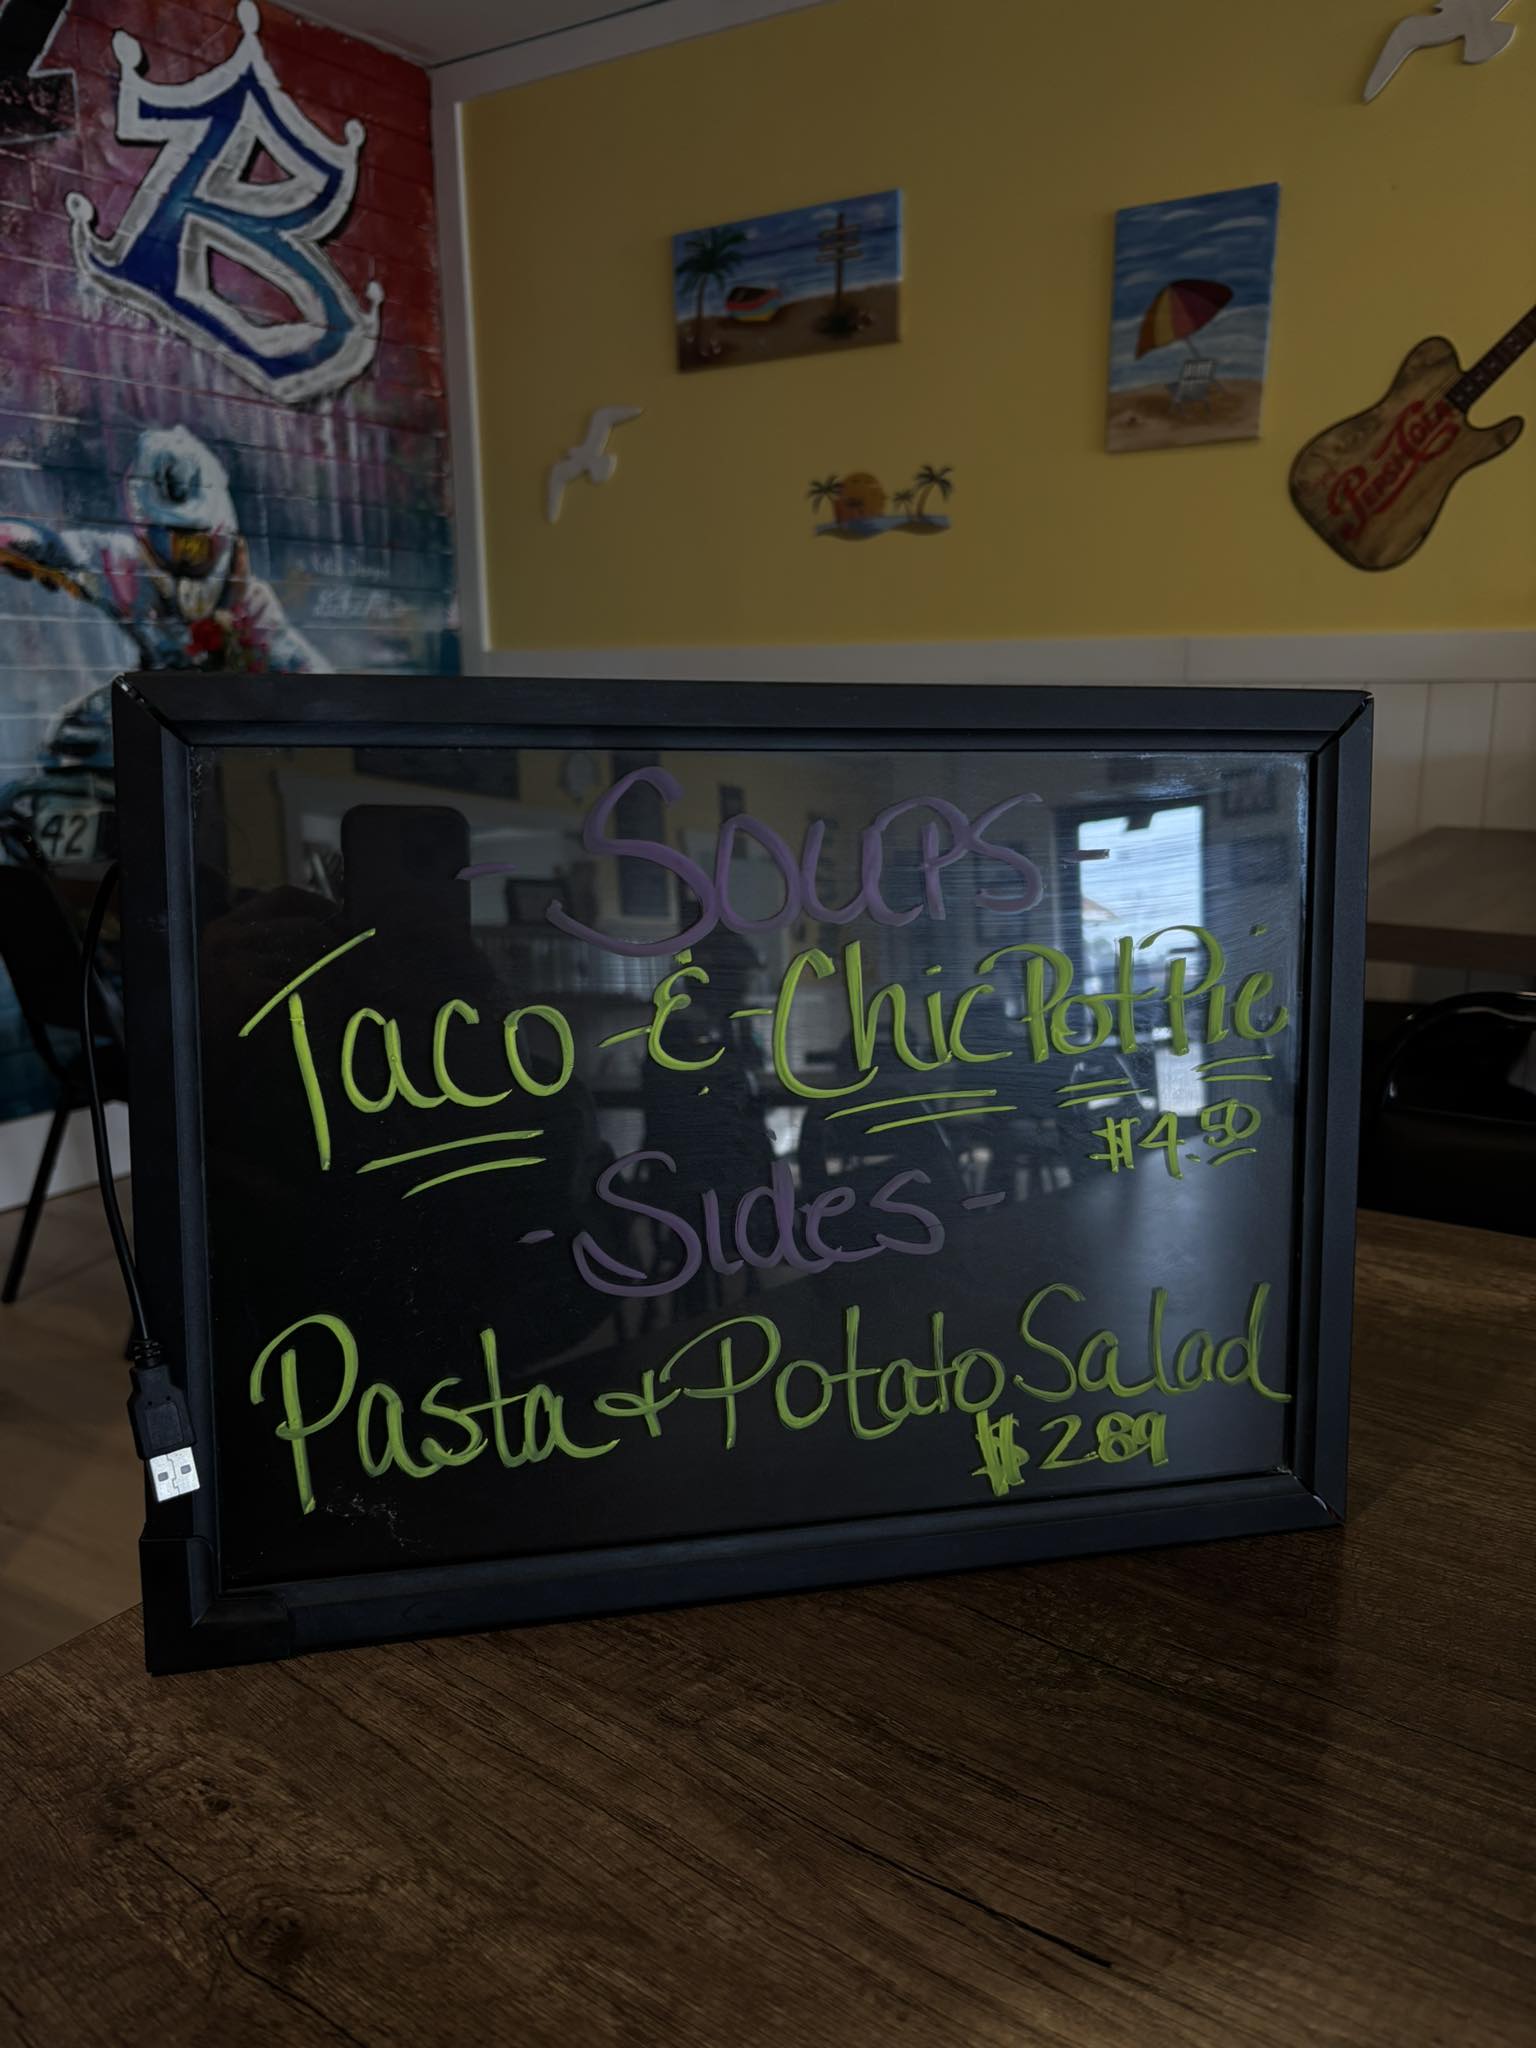 B
PEPSI-COLA
42
- Soups -
Taco - & - Chic Pot Pie
$4.50
- Sides -
Pasta & Potato Salad
$2.89